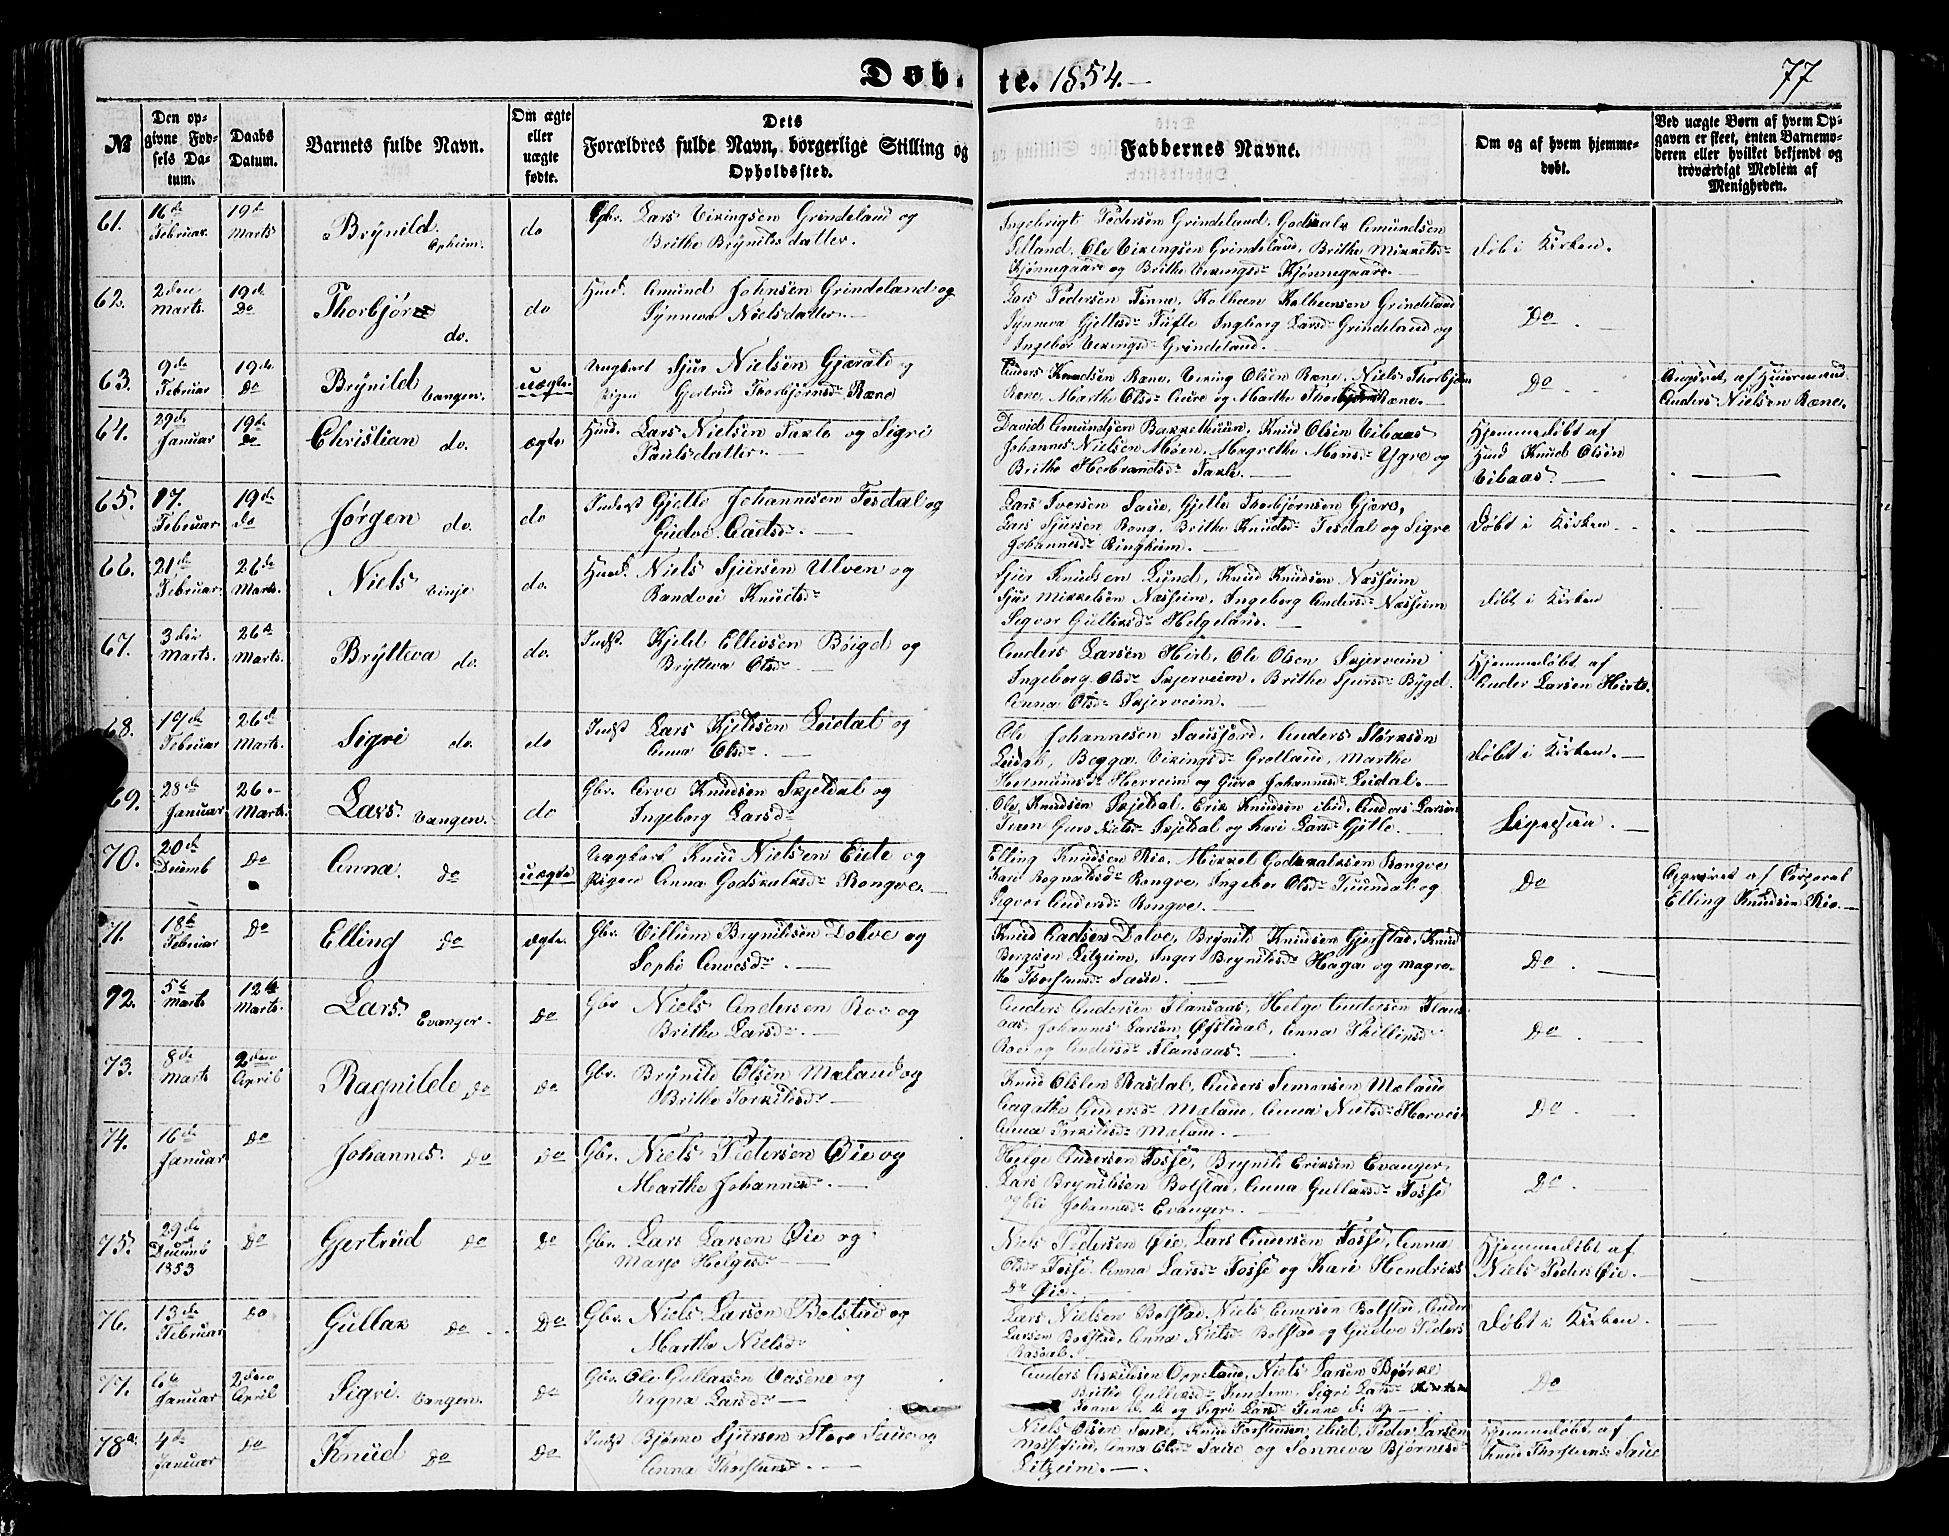 Døbte. 1854.
77
№
Den opgivne Fødsels Datum.
Daabs Datum.
Barnets fulde Navn.
Om ægte eller uægte fødte.
Dets Forældres fulde Navn, borgerlige Stilling og Opholdssted.
Faddernes Navne.
Om og af hvem hjemmedøbt.
Ved uægte Børn af hvem Opgaven er skeet, enten Barnemoderen eller hvilket bekjendt og troværdigt Medlem af Menigheden.
61. 16de Februar 19de Marts Brynild Opheim. do Gbr. Lars Vikingsen Grindeland og
Brithe Brynilsdatter.
Ingebrigt Pedersen Grindeland, Godskalk Amundsen
Ole Vikingsen Grindeland, Brithe Mikkelsd.
Kjønnegaard og Brithe Vikingsd. Kjønnegaard.
Døbt i Kirken.
62. 2den Marts. 19de Do Thorbjør do. do Huusd. Amund Johnsen Grindeland og
Synneva Nielsdatter.
Lars Pedersen Finne, Kolbein Kolbeinsen Grindeland
Synneva Gjellesd. Tufte Ingborg Larsd. Grindeland og
Ingebor Vikingsd. Grindeland.
Do
63. 9de Februar 19de Do Brynild Vangen. uægte Ungkarl Sjur Nielsen Gjerald og
Pigen Gjertrud Thorbjørnsd. Ræne
Anders Knudsen Ræne, Viking Olsen Ræne, Niels Thorbjørn
Ræne, Marthe Olsd. Aure og Marthe Ræne.
Do
Angivet af Huusmand
Anders Nielsen Ræne.
64. 29de Januar 19de Do Christian do. ægte Huusd. Lars Nielsen Saxle og Sigri
Paulsdatter.
David Amundsen Bakkethuun, Knud Olsen Vibaas
Johannes Nielsen Møen, Magrethe Monsd. Ygre og
Brithe Herbrandsd. Saxle.
Hjemmedøbt af
Huusd Knud Olsen
Vibaas
65. 17. Februar 19de Do Jørgen do. do Inderst Gjelle Johannesen Tesdal og
Gudve Eadsd.
Lars Iversen Saue, Gjelle Thorbjørnsen Gjære,
Lars Sjursen Rong, Brithe Knudsd. Tesdal og Sigre
Johannesd. Ringheim.
Døbt i Kirken.
66. 21de Februar. 26de Marts. Niels Vinje do. Huusd. Niels Sjursen Ulven og
Randvei Knudsd.
Sjur Knudsen Lund, Knud Knudsen Næsheim
Sjur Mikkelsen Næsheim, Ingeborg Andersd. Næsheim
Sigvor Gulliksd. Helgeland.
Døbt i Kirken
67. 3die Marts. 26de Marts. Brytteva do. do. Indst. Kjeld Ellevsen Bøigd og
Brytteva Olsd.
Anders Larsen Hirt, Ole Olsen Skjerveim
Ingeborg Olsd. Skjerveim, Brithe Sjursd. Bygd.
Anna Olsd. Skjerveim.
Hjemmedøbt af
Ander Larsen Hirte.
68. 19de Februar 26de Marts. Sigri do. do Indst Lars Kjeldsen Leidal og
Anna Olsd.
Ole Johannesen Sausjord, Anders Størksen
Leidal, Begga Vikingsd. Grotland, Marthe
Hermunsd. Herreim og Guro Johannesd. Leidal.
Døbt i Kirken.
69. 28de Januar 26. Marts. Lars. Vangen. do Gbr. Arve Knudsen Skjeldal og
Ingeborg Larsd.
Ole Knudsen Skjeldal, Erik Knudsen ibid, Anders Larsen
Guro Nielsd. Skjeldal og Kari Larsd. Gjelle.
Ligesaa.
70. 20de Decemb Do Anna. Do uægte Ungkarl Knud Nielsen Eide og
Pigen Anna Godskalksd. Rongve.
Elling Knudsen Rio, Mikkel Godskalksen Rongve
Kari Rognaldsd. Rongve, Ingebor Olsd. og
Sigvor Andersd. Rongve.
Do
Opgivet af Corporal
Elling Knudsen Rio.
71. 18de Februar Do Elling Do ægte. Gbr. Villum Brynilsen Dolve og
Sophi Arvesd.
Knud Eadsen Dolve, Brynild Knudsen Gjerstad, Knud
Litzeim, Inger Brynilsd. Haga og Magre-
the Thorstensd. Saue.
Do
72. 5te Marts 12te Marts. Lars Evanger. Do Gbr Niels Andersen Roo og
Brithe Larsd.
Anders Andersen Flansaas, Helge Andersen Flans-
aas, Johannes Larsen Øfstedal, Anna
Roo og Andersd. Flansaas.
Do
73. 8de Marts 2den April Ragnilde Do Do Gbr. Brynild Olsen Mæland og
Brithe Torkildsd.
Knud Olsen Rasdal, Anders Simonsen Mæland
Aagathe Andersd. Mæland, Anna Nielsd. Horvei
Anna Torkildsd. Mæland.
Do
74. 16de Januar Do Johannes Do Do Gbr. Niels Pedersen Øie og
Marthe Johannesd.
Helge Andersen Fosse, Brynild Eriksen Evanger,
Lars Brynilsen Bolstad, Anna Gullaksd. Fosse
og Eli Johannesd. Evanger.
Do
75. 29de Decemb 1853 Do Gjertrud Do Do Gbr. Lars Larsen Øie og
Marjo Helgesd.
Niels Pedersen Øie, Lars Andersen Fosse, Anna
Olsd. Fosse, Anna Larsd. Fosse og Kari Hendriks
Dr Øie.
Hjemmedøbt af
Niels Peders Øie.
76. 13de Februar Do Gullak Do Do Gbr. Niels Larsen Bolstad og
Marthe Nielsd.
Lars Nielsen Bolstad, Niels Andersen Bolstad, Ander
Larsen Bolstad, Anna Nielsd. Bolstad og Gudve Peders
Rasdal.
Døbt i Kirken.
77. 6te Januar 2den April Sigri. Vangen. Do Gbr. Ole Gullaksen Vasene og
Ragna Larsd.
Anders Oppeland, Niels Larsen Bjørke
Britha Gulliksd. Sigri Larsd.
Finne og Sigri Larsd. Finne
Do
78a. 4de Januar Do Knud Do Do Indst Bjørne Sjursen Store Saue og
Anna Thorstensd.
Niels Olsen Saue, Knud Torstensen ibid, Peder Larsen
Anna Olsd. Saue og Sonneva Bjørnesd.
Litzeim.
Hjemmedøbt af
Knud Thorstens. Saue